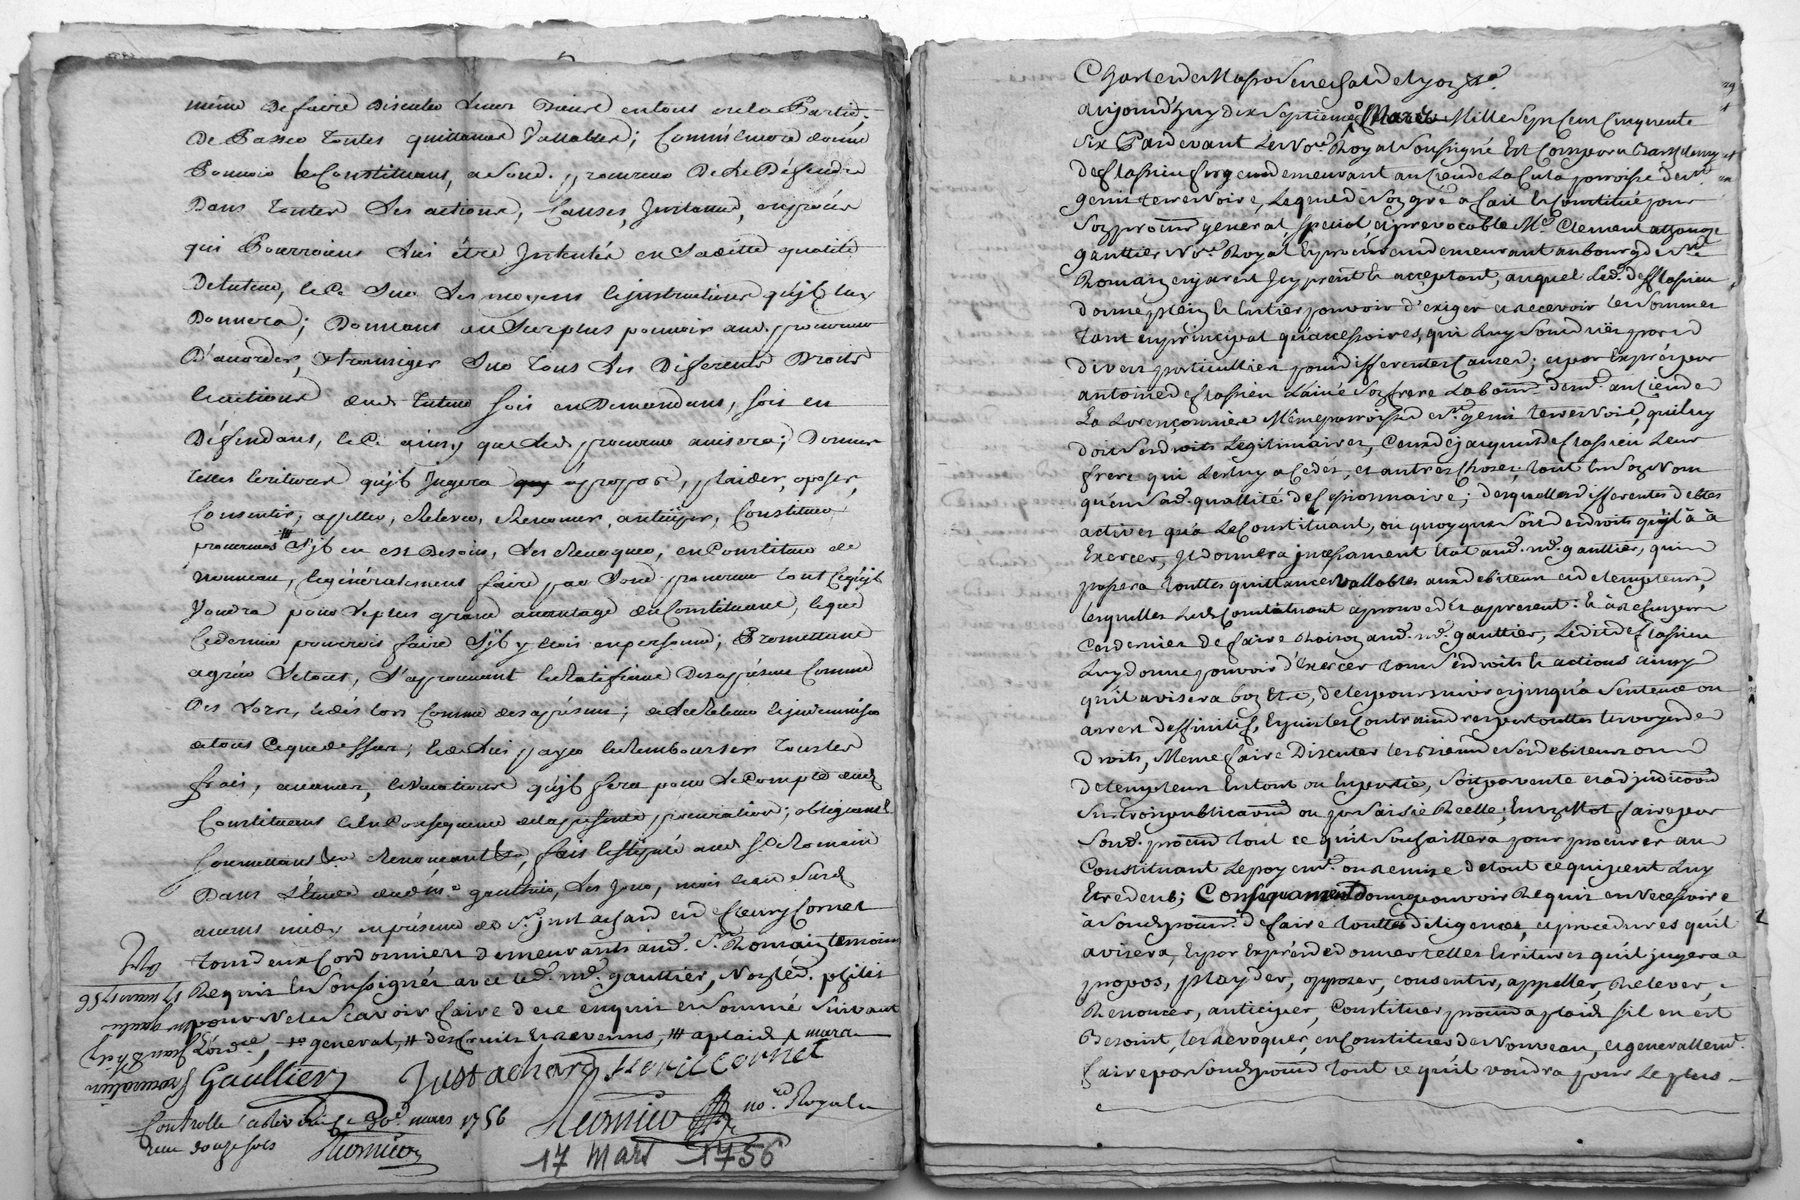 même de faire discuter leurs biens en tout ou en Partie
De Passer toutes quittances Vallables; Comm' encore donne
Pouvoir le Constituant, a sond. procureur De Le Défendre
Dans toutes les actions, Causes, Instances, en procès
qui Pourroient lui être Intentés en Saditte qualité
De tuteur, le Sur les moyens & instructions qu'il luy
Donnera; Donnant au Surplus pouvoir aud. procureur
D'acorder, transiger Sur tous les Diferents Droits
& actions dud. tuteur soit en Demandant, soit en
Défendant, ainsy que led. procureur avisera; Donner
telles Ecritures qu'il Jugera à propos, plaider, oposer,
Consentir, appeller, Relever, Renoncer, anticiper, Constituer
procureurs S'il en est Besoin, Les Revoquer, en Constituer de
nouveau, & généralement faire par Sond. procureur tout ce qu'il
Voudra pour le plus grand avantage du Constituant, & que
ce dernier pourroit faire S'il y étoit en personne; Promettant
agréer le tout, l'aprouvant & Ratifiant Des apresent Comme
Des Lors, & dès lors Comme des apresent; de le Relever & indemniser
de tout ce que dessus; & de Lui payer & Rembourser tous les
frais, avances, & vacations qu'il fera pour le Compte dud.
Constituant en Consequence de la presente procuration; obligeant
soumettant Renonceant, fait & stipulé aud. St. Romain
Dans L'étude dud. me gautthier, Les Jour, mois & an Susd.
avant midy en présence de Sr. just achard et de fleury Cornet
tous deux Cordonniers demeurants aud. St. Romain temoins
Requis & Soussignés avec led. me. gaultier, Non led.
pour ne le Scavoir faire de ce enquis & Sommé Suivant
L'ord.ce, general, des fruits & Revenus, a plaid mars
17 mars 1756
Gaulltier
Just achard
fleurie Cornet
Controllé mars 1756
Reçu douze sols
no.re Royal
17 Mars 1756
aujourd'huy dix Septieme Mars Mille Sept Cent Cinquante
Six Pardevant Le No.re Royal Soussigné Est Comparu Barthelemy
genis terrenoire, Lequel de Son gré a fait & Constitué pour
Son procur. general, special & irrevocable Me. Clement
gaultier No.re Royal & procureur demeurant au bourg de St.
Romain en jarest Icy present & acceptant, auquel Led.
donne plein & Entier pouvoir d'exiger et recevoir les sommes
tant en principal qu'accessoires, qui Luy Sont dues par
divers particulliers pour differentes Causes; et par Exprès par
antoine Lainé Son frere Labour. dem.t au Lieu de
Même parroisse St. genis terrenoire, qu'il luy
doit Ses droits Legitimaires, Ceux de jacques Leur
frere qui Les luy a Cedés, et autres Choses, tout en Son Nom
qu'en Sad. quallité de Cessionnaire; desquelles differentes debtes
actives qu'a Le Constituant, ou quoy que Soit de droits qu'il a à
Exercer, Il donnera incessament Etat aud. me. gaultier, qui
passera touttes quittances Vallables aux debiteurs et detempteurs,
lesquelles Led. Constituant aprouve dés apresent: & à deffaut
Ces derniers de faire Raison aud. me. gaultier, Ledit
Luy donne pouvoir d'Exercer tous Ses droits & actions ainsy
qu'il avisera bon Etre, de les poursuivre jusqu'a Sentence ou
arrest deffinitif, & puis les Contraindre par touttes Les voyes de
droits, Meme faire Discuter les biens de Ses debiteurs ou
detempteurs En tout ou En partie, Soit par vente et adjudication
Sur trois publications ou par Saisie Reelle; En un Mot faire par
Sond. procur. tout ce qu'il Souhaittera pour procurer au
Constituant Le payem.t ou remise de tout ce qui peut Luy
Etre deub; Consequament donne pouvoir Requis & necessaire
à Sond. procur. de faire touttes diligences, et procedures qu'il
avisera, & par Exprés de donner telles Ecritures qu'il jugera a
propos, playder, opposer, consentir, appeller, Relever,
Renoncer, anticiper, Constituer procur. a plaid s'il en est
Besoint, les Revoquer, en Constituer de Nouveau, et generallem.t
faire par Sond. procur. tout ce qu'il voudra pour Le plus